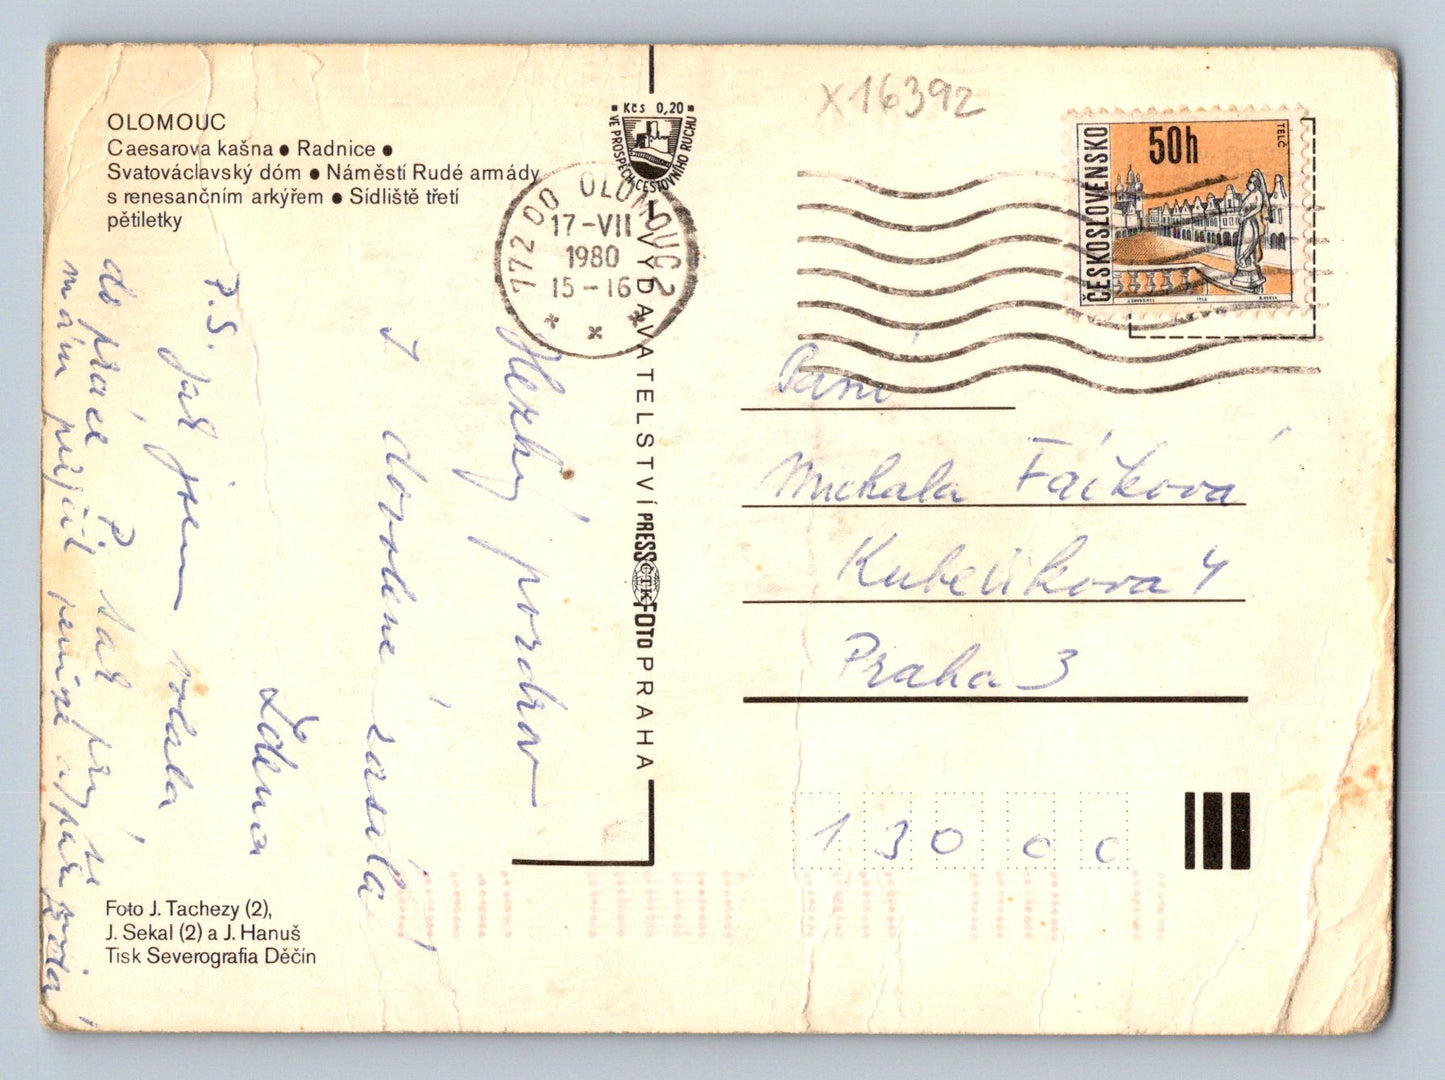 OLOMOUC
Caesarova kašna ● Radnice ●
Svatováclavský dóm ● Náměstí Rudé armády
s renesančním arkýřem ● Sídliště třetí
pětiletky
Kčs 0,20
VE PROSPĚCH CESTOVNÍHO RUCHU
772 00 OLOMOUC 2
17-VII
1980
15-16
X16392
ČESKOSLOVENSKO
50h
TELČ
VYDAVATELSTVÍ PRESSFOTO PRAHA
ČTK
Hezký pozdrav
z dovolené zasílá
Zdena
P.S. Jak jsem volala
do práce P. tak prý
mám přijít
Paní
Michala Fáčková
Kubelíkova 4
Praha 3
130 00
Foto J. Tachezy (2),
J. Sekal (2) a J. Hanuš
Tisk Severografia Děčín